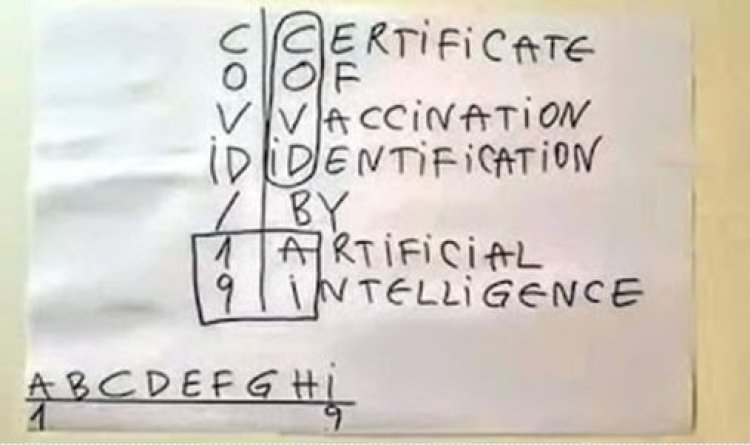 C CERTiFiCATE
O OF
V VACCiNATiON
iD iDENTiFiCATiON
/ BY
1 ARTiFiCiAL
9 iNTELLiGENCE
ABCDEFGHi
1 9